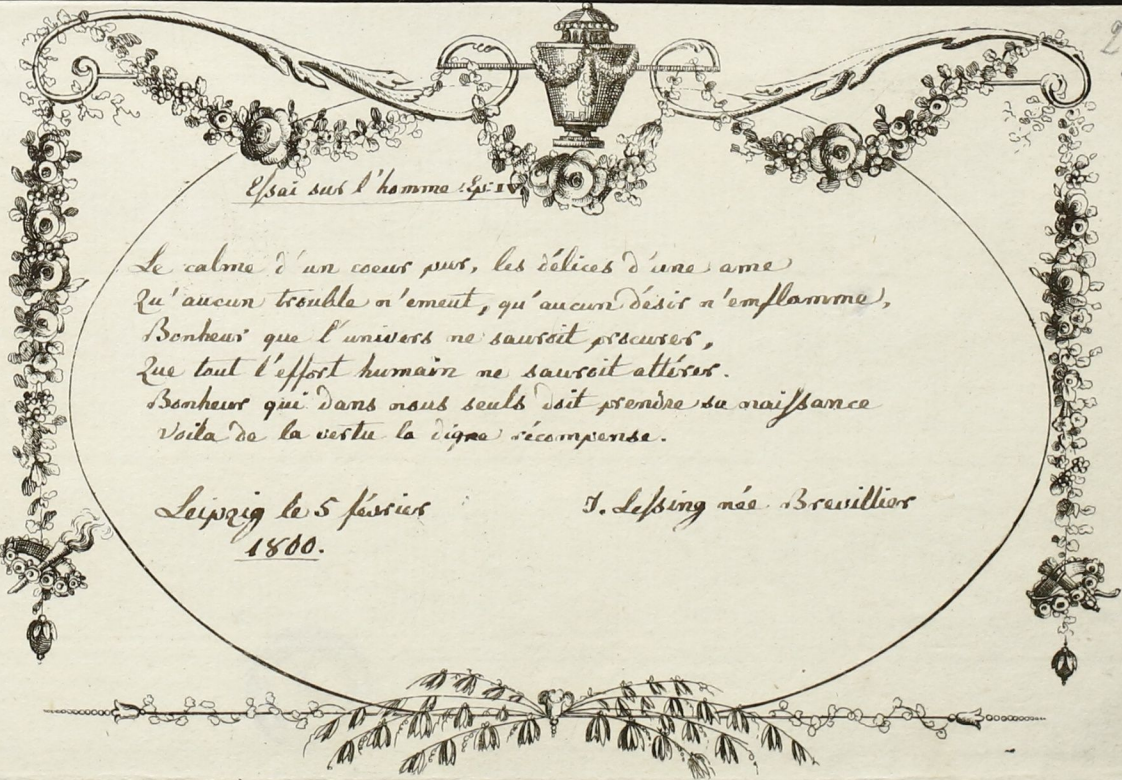 Essai sur l'homme. Ep: IV.
Le calme d'un coeur pur, les délices d'une ame
Qu'aucun trouble n'emeut, qu'aucun désir n'emflamme,
Bonheur que l'univers ne sauroit procurer,
Que tout l'effort humain ne sauroit attérer.
Bonheur qui dans nous seuls doit prendre sa naissance
Voila de la vertu la digne récompense.
Leipzig le 5 février
J. Lessing née Brevillier
1800.
2